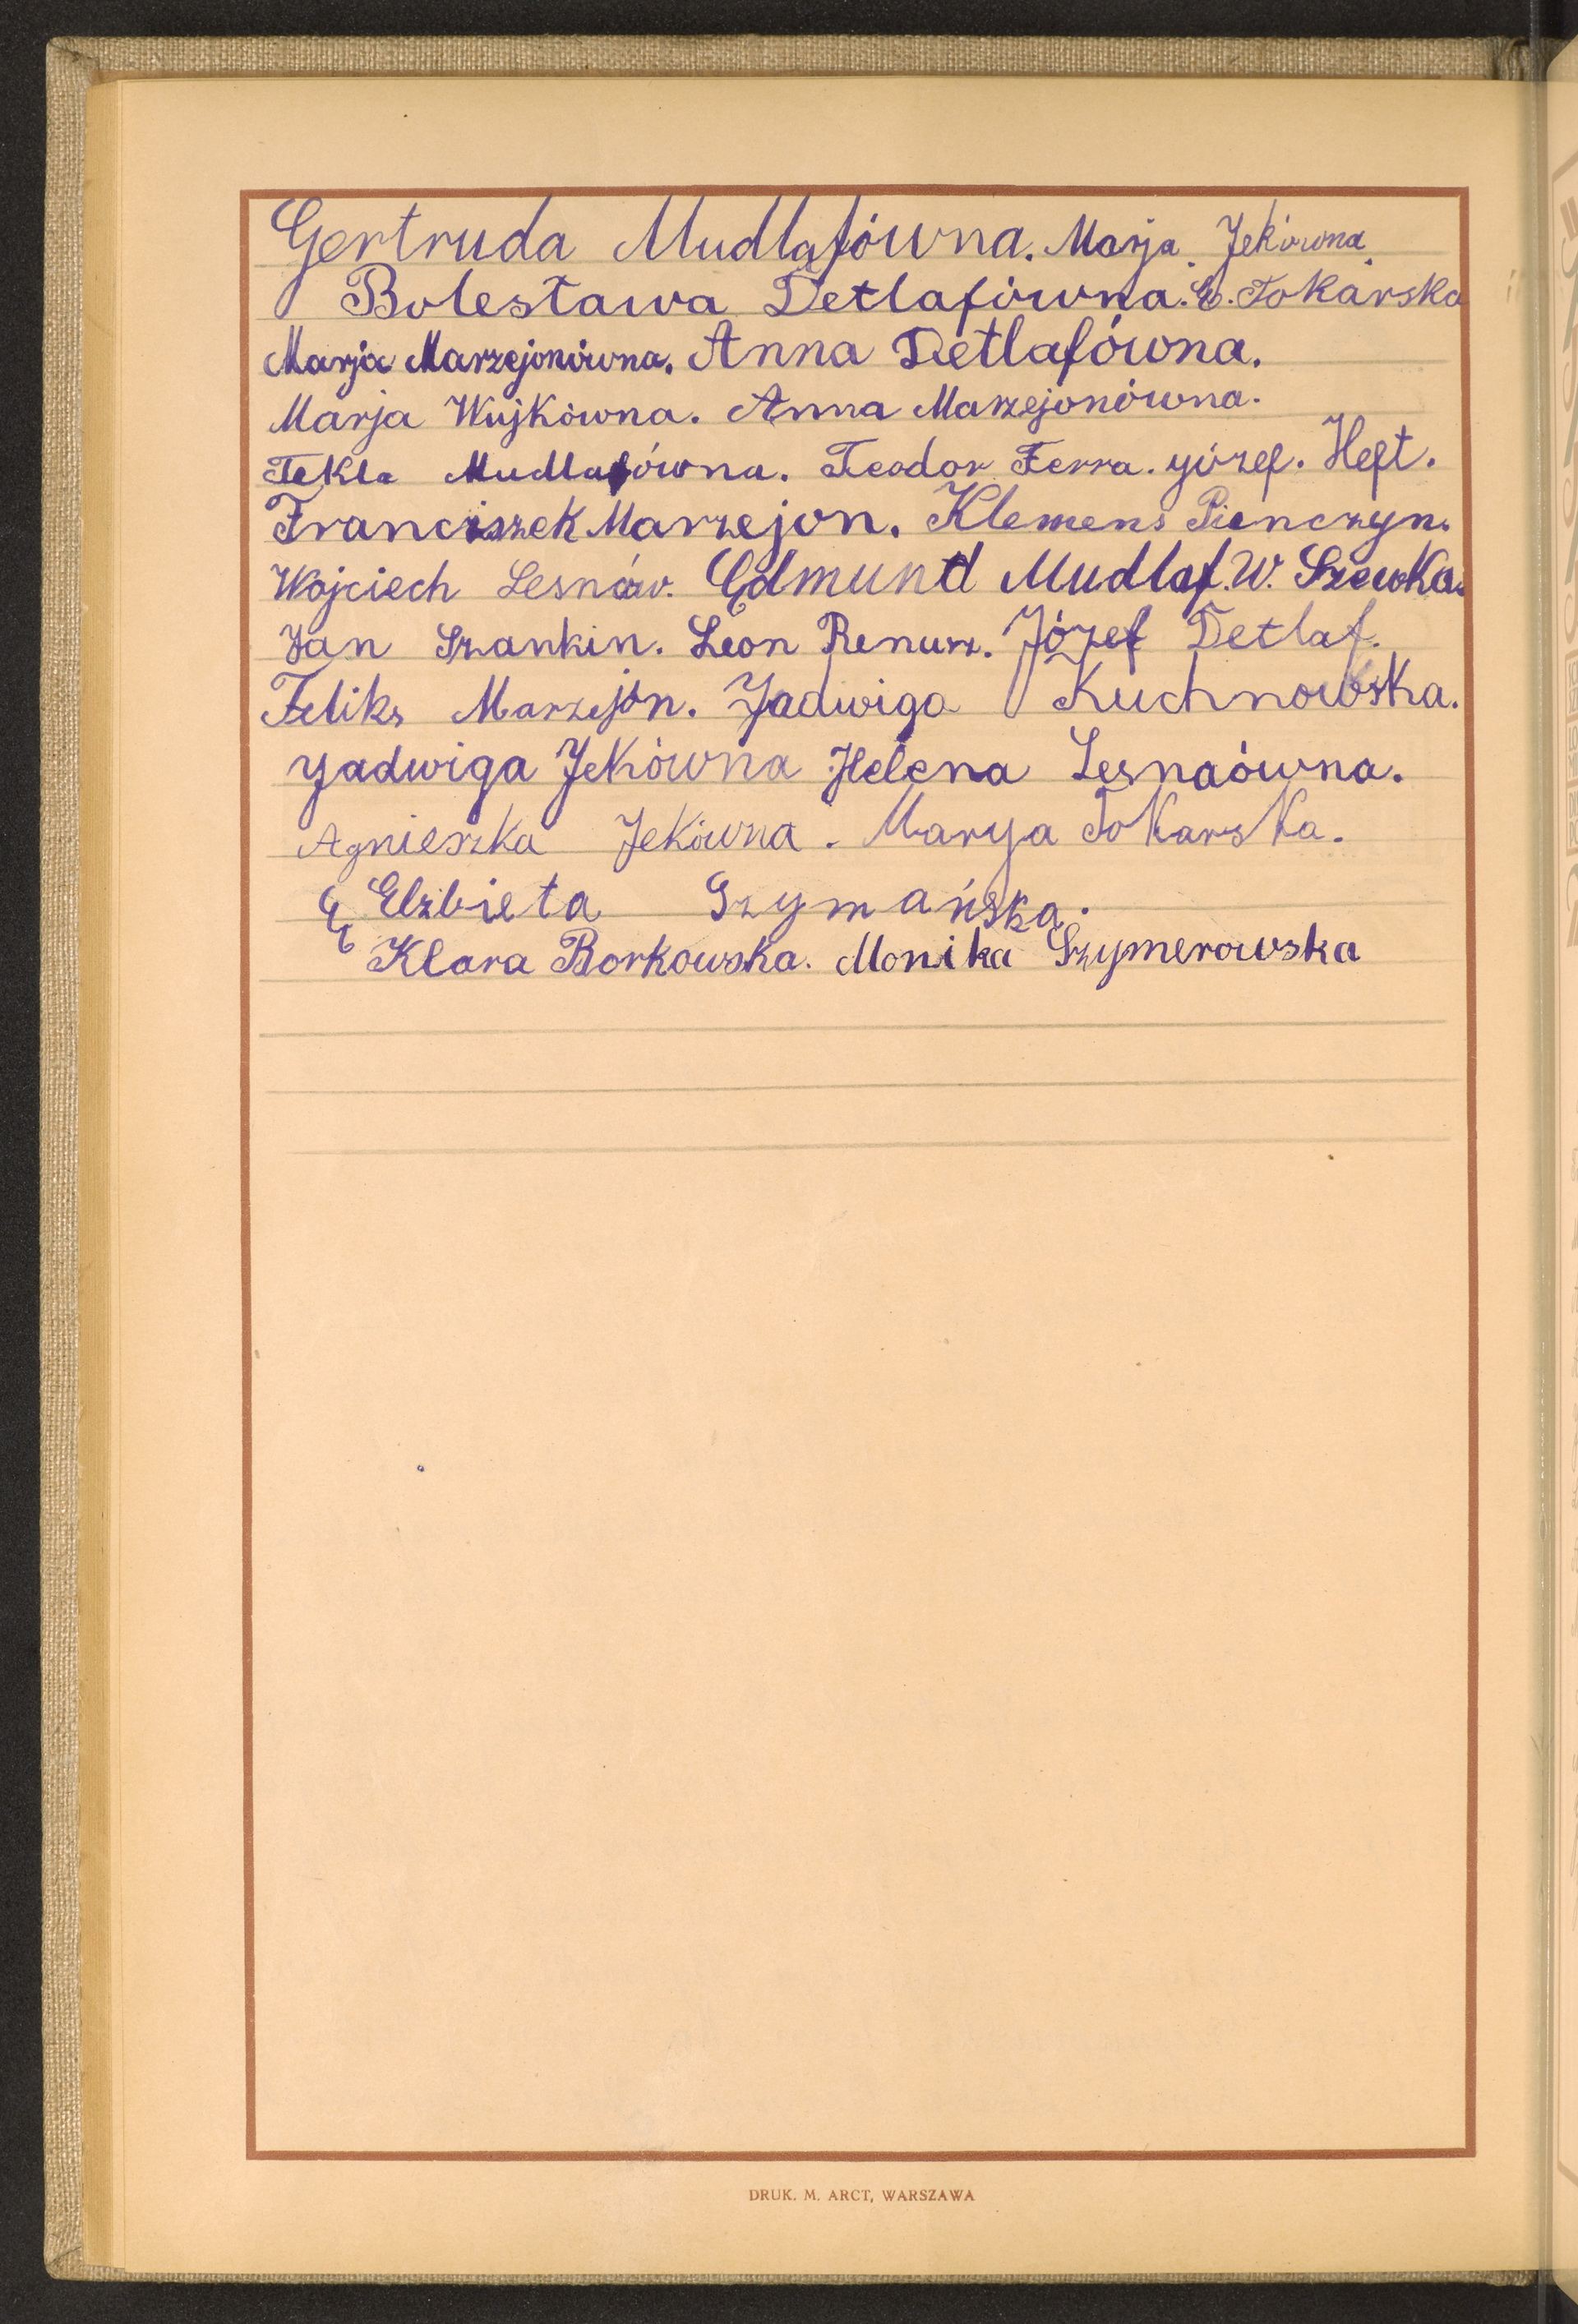 Gertruda Mudlafówna. Marja Jekówna.
Bolesława Detlafówna. E. Tokarska
Marja Marzejonówna. Anna Detlafówna.
Marja Wujkówna. Anna Marzejonówna.
Tekla Mudlafówna. Teodor Ferra. Józef. Heft.
Franciszek Marzejon. Klemens Pienczyn.
Wojciech Lesnáw. Edmund Mudlaf. W. Szewka.
Jan Szankin. Leon Renusz. Józef Detlaf.
Feliks Marzejon. Jadwiga Kuchnowska.
Jadwiga Jekówna Helena Lesnaówna.
Agnieszka Jekówna. Marya Tokarska.
E Elzbieta Szymańska.
Klara Borkowska. Monika Szymerowska
DRUK. M. ARCT, WARSZAWA